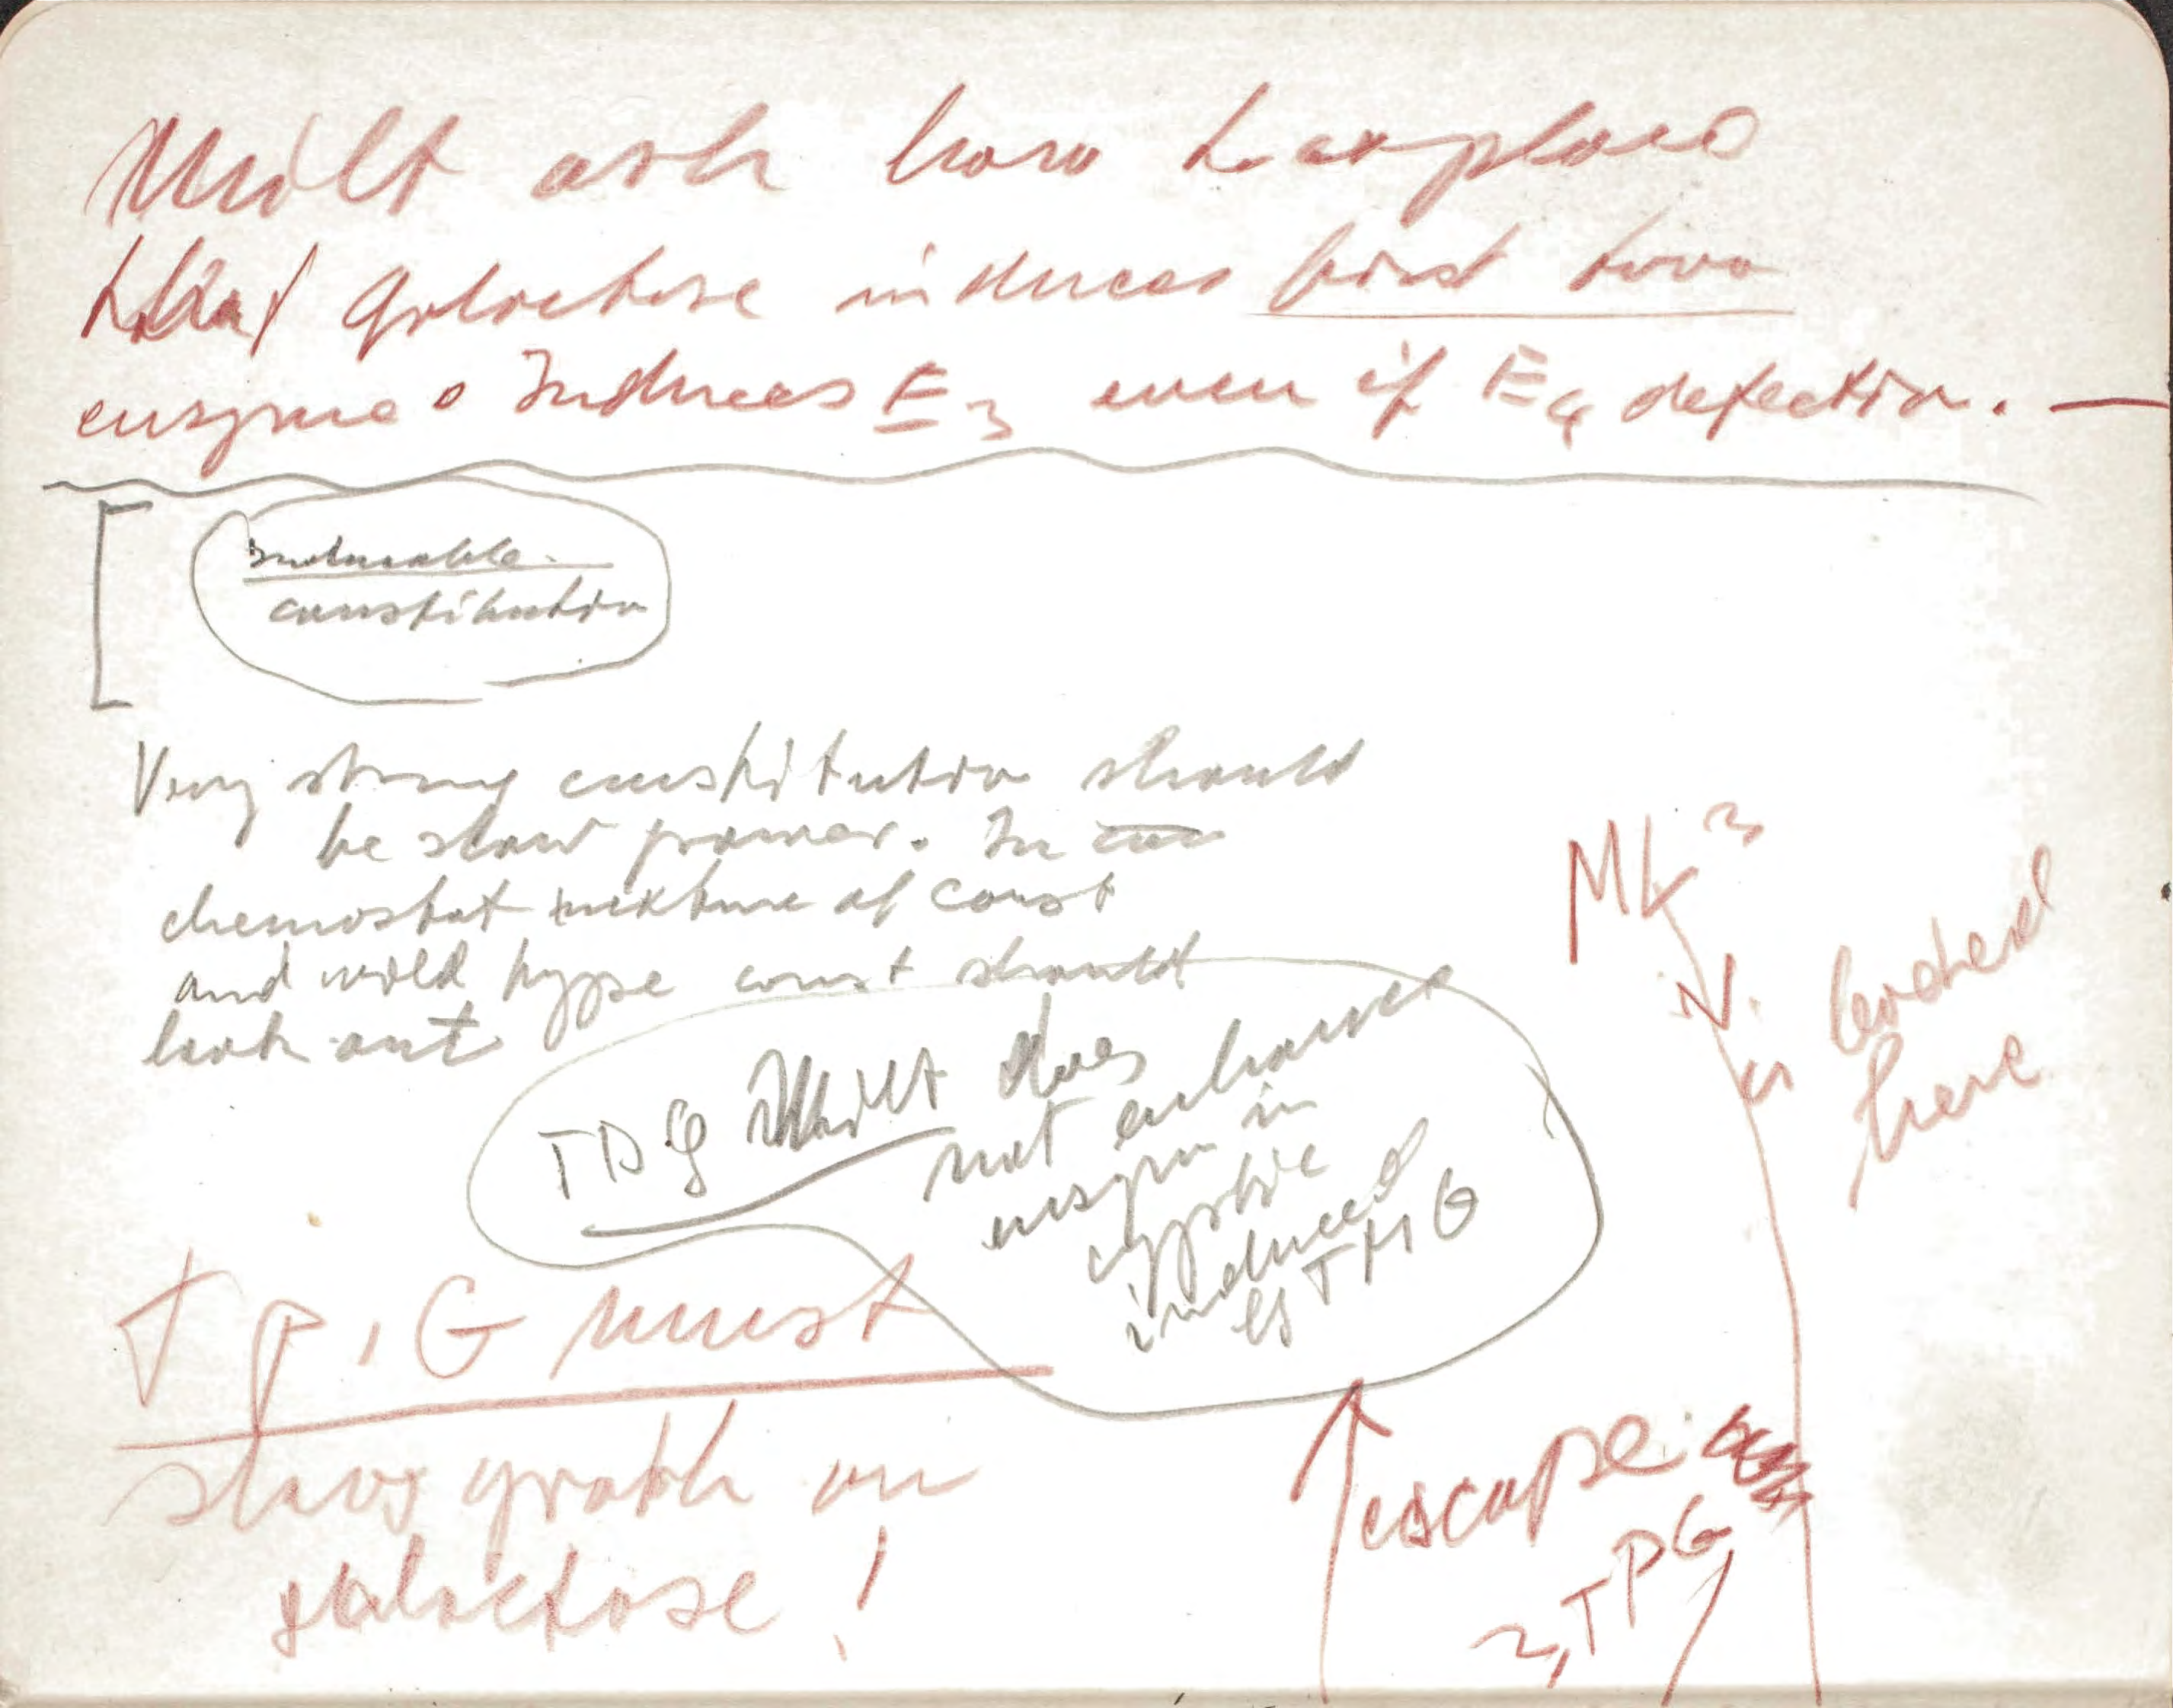 Milt ask how to explain
that galactose induces first two
enzyme. Induces E3 even if E4 defective.
inducable
constitutive
Very strong constitutive should
be slow grower. In
chemostat mixture of const
and wild type const should
lose out
TDG Milt does
not enhance
enzym in
cryptic
induced
by TMG
TPG must
slow growth on
galactose!
MK
N.
is
here
escape
TPG